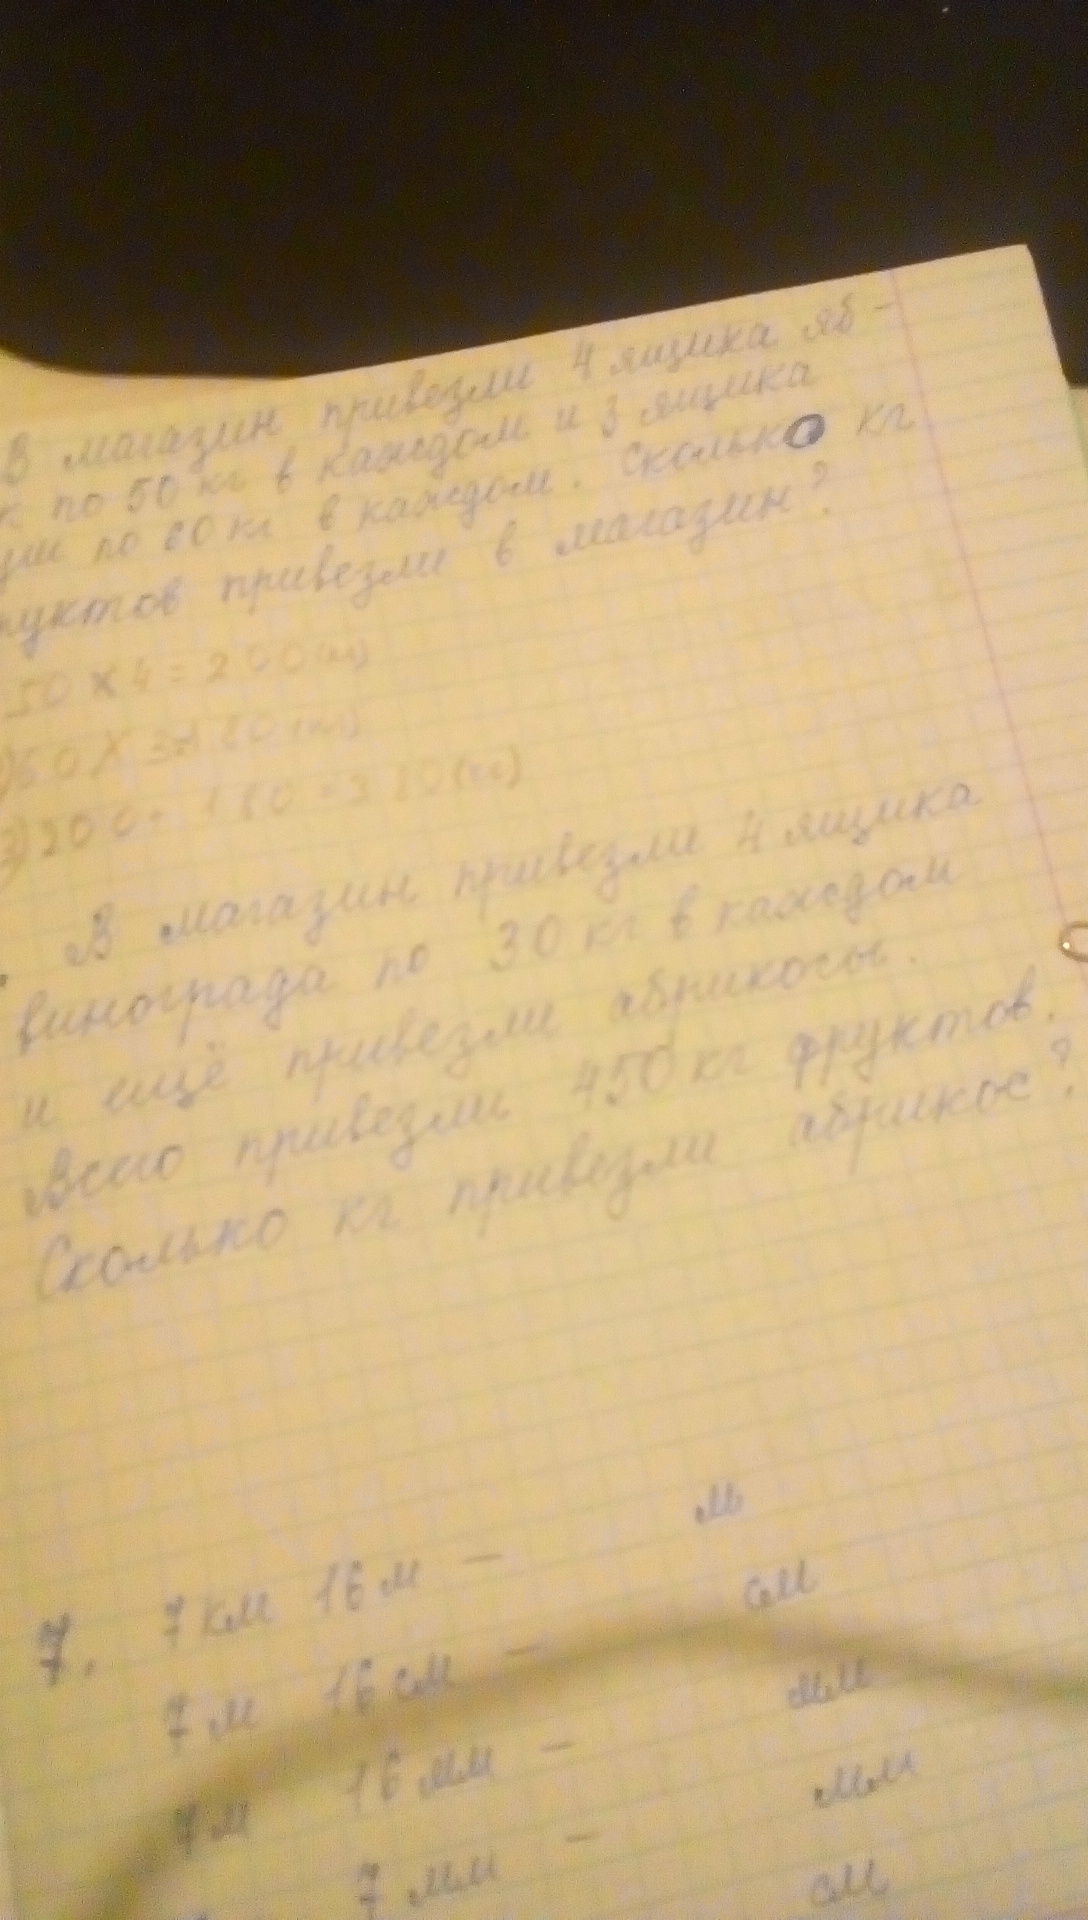 В магазин привезли 4 ящика яб-
к по 50 кг в каждом и 3 ящика
уш по 60 кг в каждом. Сколько кг
руктов привезли в магазин?
50 X 4 = 200 (кг)
)60 X 3=180 (кг)
3)200+180=380(кг)
В магазин привезли 4 ящика
винограда по 30 кг в каждом
и ещё привезли абрикосы.
Всего привезли 450 кг фруктов.
Сколько кг привезли абрикос?
7. 7 км 16 м — м
7 м 16 см — см
7 м 16 мм — мм
7 мм — мм
см